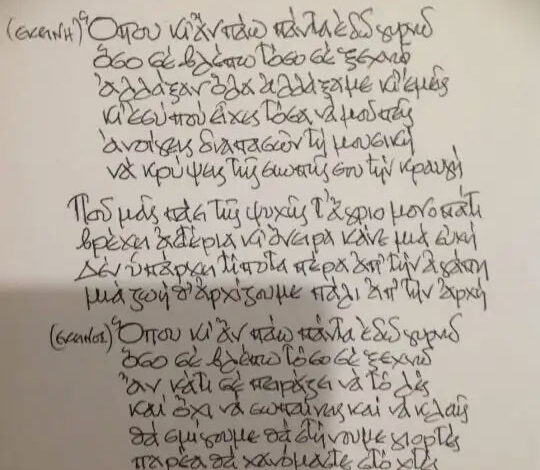 (ΕΚΕΙΝΗ) Ὅπου κι ἂν πάω πάντα ἐδῶ γυρνῶ
ὅσο σὲ βλέπω τόσο σὲ ξεχνῶ
ἀλλάξαν ὅλα ἀλλάξαμε κι ἐμεῖς
κι ἐσὺ ποὺ εἶχες τόσα νὰ μοῦ πεῖς
ἀνοίγεις διαπασῶν τὴ μουσικὴ
νὰ κρύψεις τῆς σιωπῆς σου τὴν κραυγὴ
Ποῦ μᾶς πάει τῆς ψυχῆς τ' ἄγριο μονοπάτι
βρέχει ἀστέρια κι ὄνειρα κάνε μιὰ εὐχὴ
Δὲν ὑπάρχει τίποτα πέρα ἀπ' τὴν ἀγάπη
μιὰ ζωὴ θ' ἀρχίζουμε πάλι ἀπ' τὴν ἀρχὴ
(ΕΚΕΙΝΟΣ) Ὅπου κι ἂν πάω πάντα ἐδῶ γυρνῶ
ὅσο σὲ βλέπω τόσο σὲ ξεχνῶ
ἂν κάτι σὲ πειράζει νὰ τὸ λὲς
καὶ ὄχι νὰ σωπαίνεις καὶ νὰ κλαῖς
θὰ σμίγουμε θὰ στήνουμε γιορτὲς
παρέα θὰ χανόμαστε στὸ χτὲς